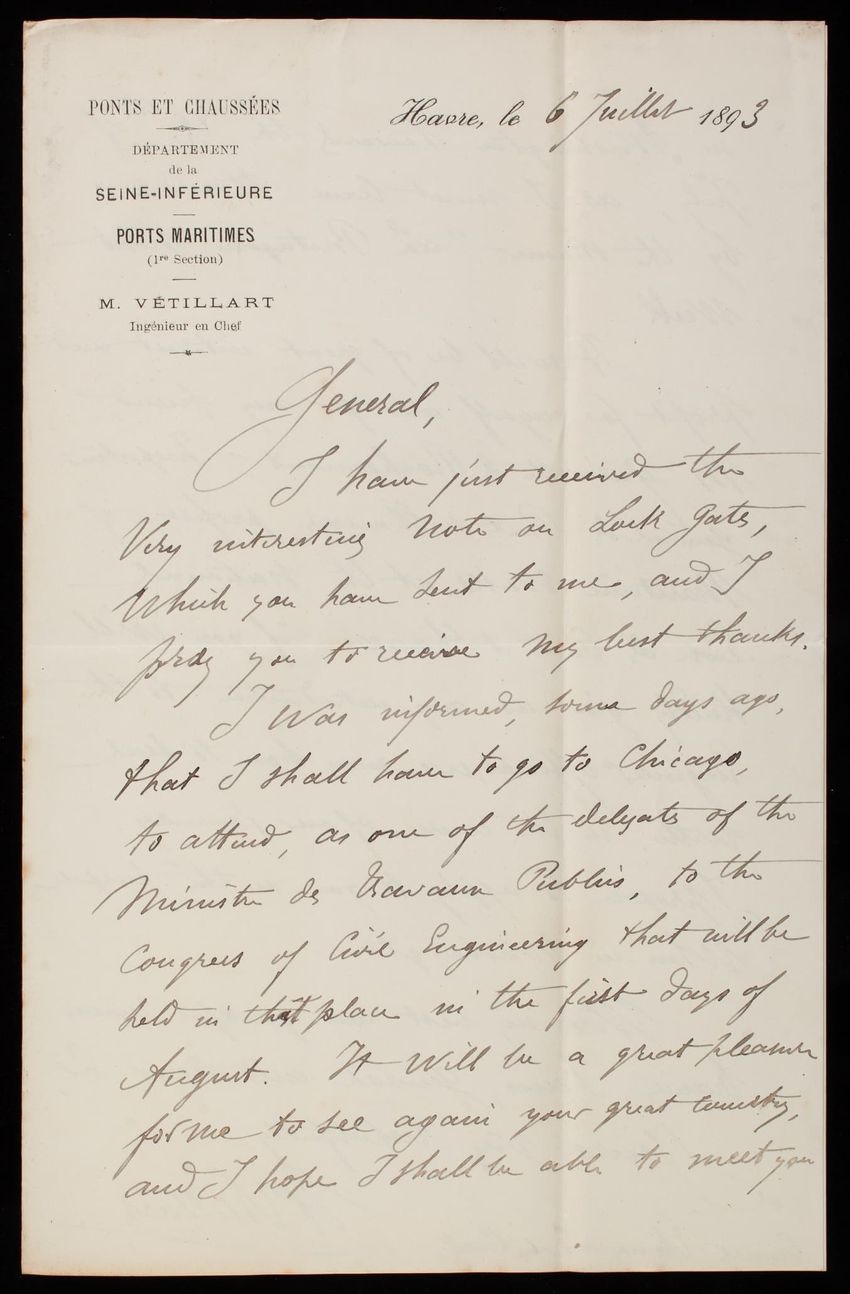 PONTS ET CHAUSSÉES
DÉPARTEMENT
de la
SEINE-INFÉRIEURE
PORTS MARITIMES
(1re Section)
M. VÉTILLART
Ingénieur en Chef
Havre, le 6 Juillet 1893
General,
I have just received the
Very interesting Note on Lock Gates,
Which you have sent to me, and I
pray you to receive my best thanks.
I Was informed, some days ago,
that I shall have to go to Chicago,
to attend, as one of the delegates of the
Ministre des Travaux Publics, to the
Congress of Civil Engineering that will be
held in that place in the first days of
August. It Will be a great pleasure
for me to see again your great country,
and I hope I shall be able to meet you